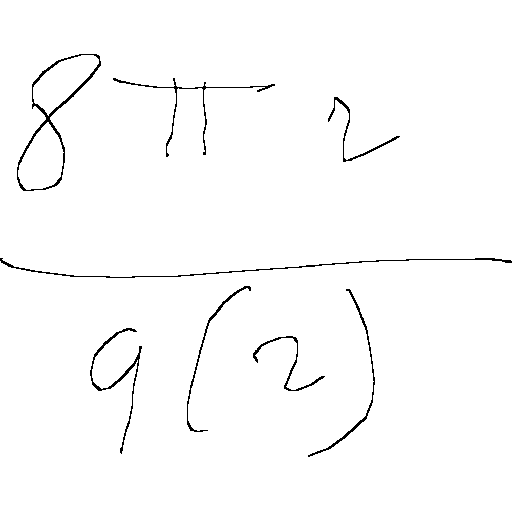 8π2
9(2)